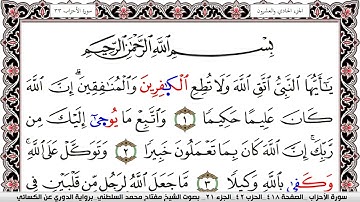 الجزء الحادي والعشرون
سورة الأحزاب ٣٣
بِسْمِ اللَّهِ الرَّحْمَٰنِ الرَّحِيمِ
يَٰٓأَيُّهَا النَّبِيُّ اتَّقِ اللَّهَ وَلَا تُطِعِ الْكَٰفِرِينَ وَالْمُنَٰفِقِينَ إِنَّ اللَّهَ
كَانَ عَلِيمًا حَكِيمًا ١ وَاتَّبِعْ مَا يُوحَىٰ إِلَيْكَ مِن
رَّبِّكَ إِنَّ اللَّهَ كَانَ بِمَا تَعْمَلُونَ خَبِيرًا ٢ وَتَوَكَّلْ عَلَى اللَّهِ
وَكَفَىٰ بِاللَّهِ وَكِيلًا ٣ مَّا جَعَلَ اللَّهُ لِرَجُلٍ مِّن قَلْبَيْنِ فِي
سورة الأحزاب الصفحة ٤١٨ الحزب ٤٢ الجزء ٢١ بصوت الشيخ مفتاح محمد السلطني برواية الدوري عن الكسائي